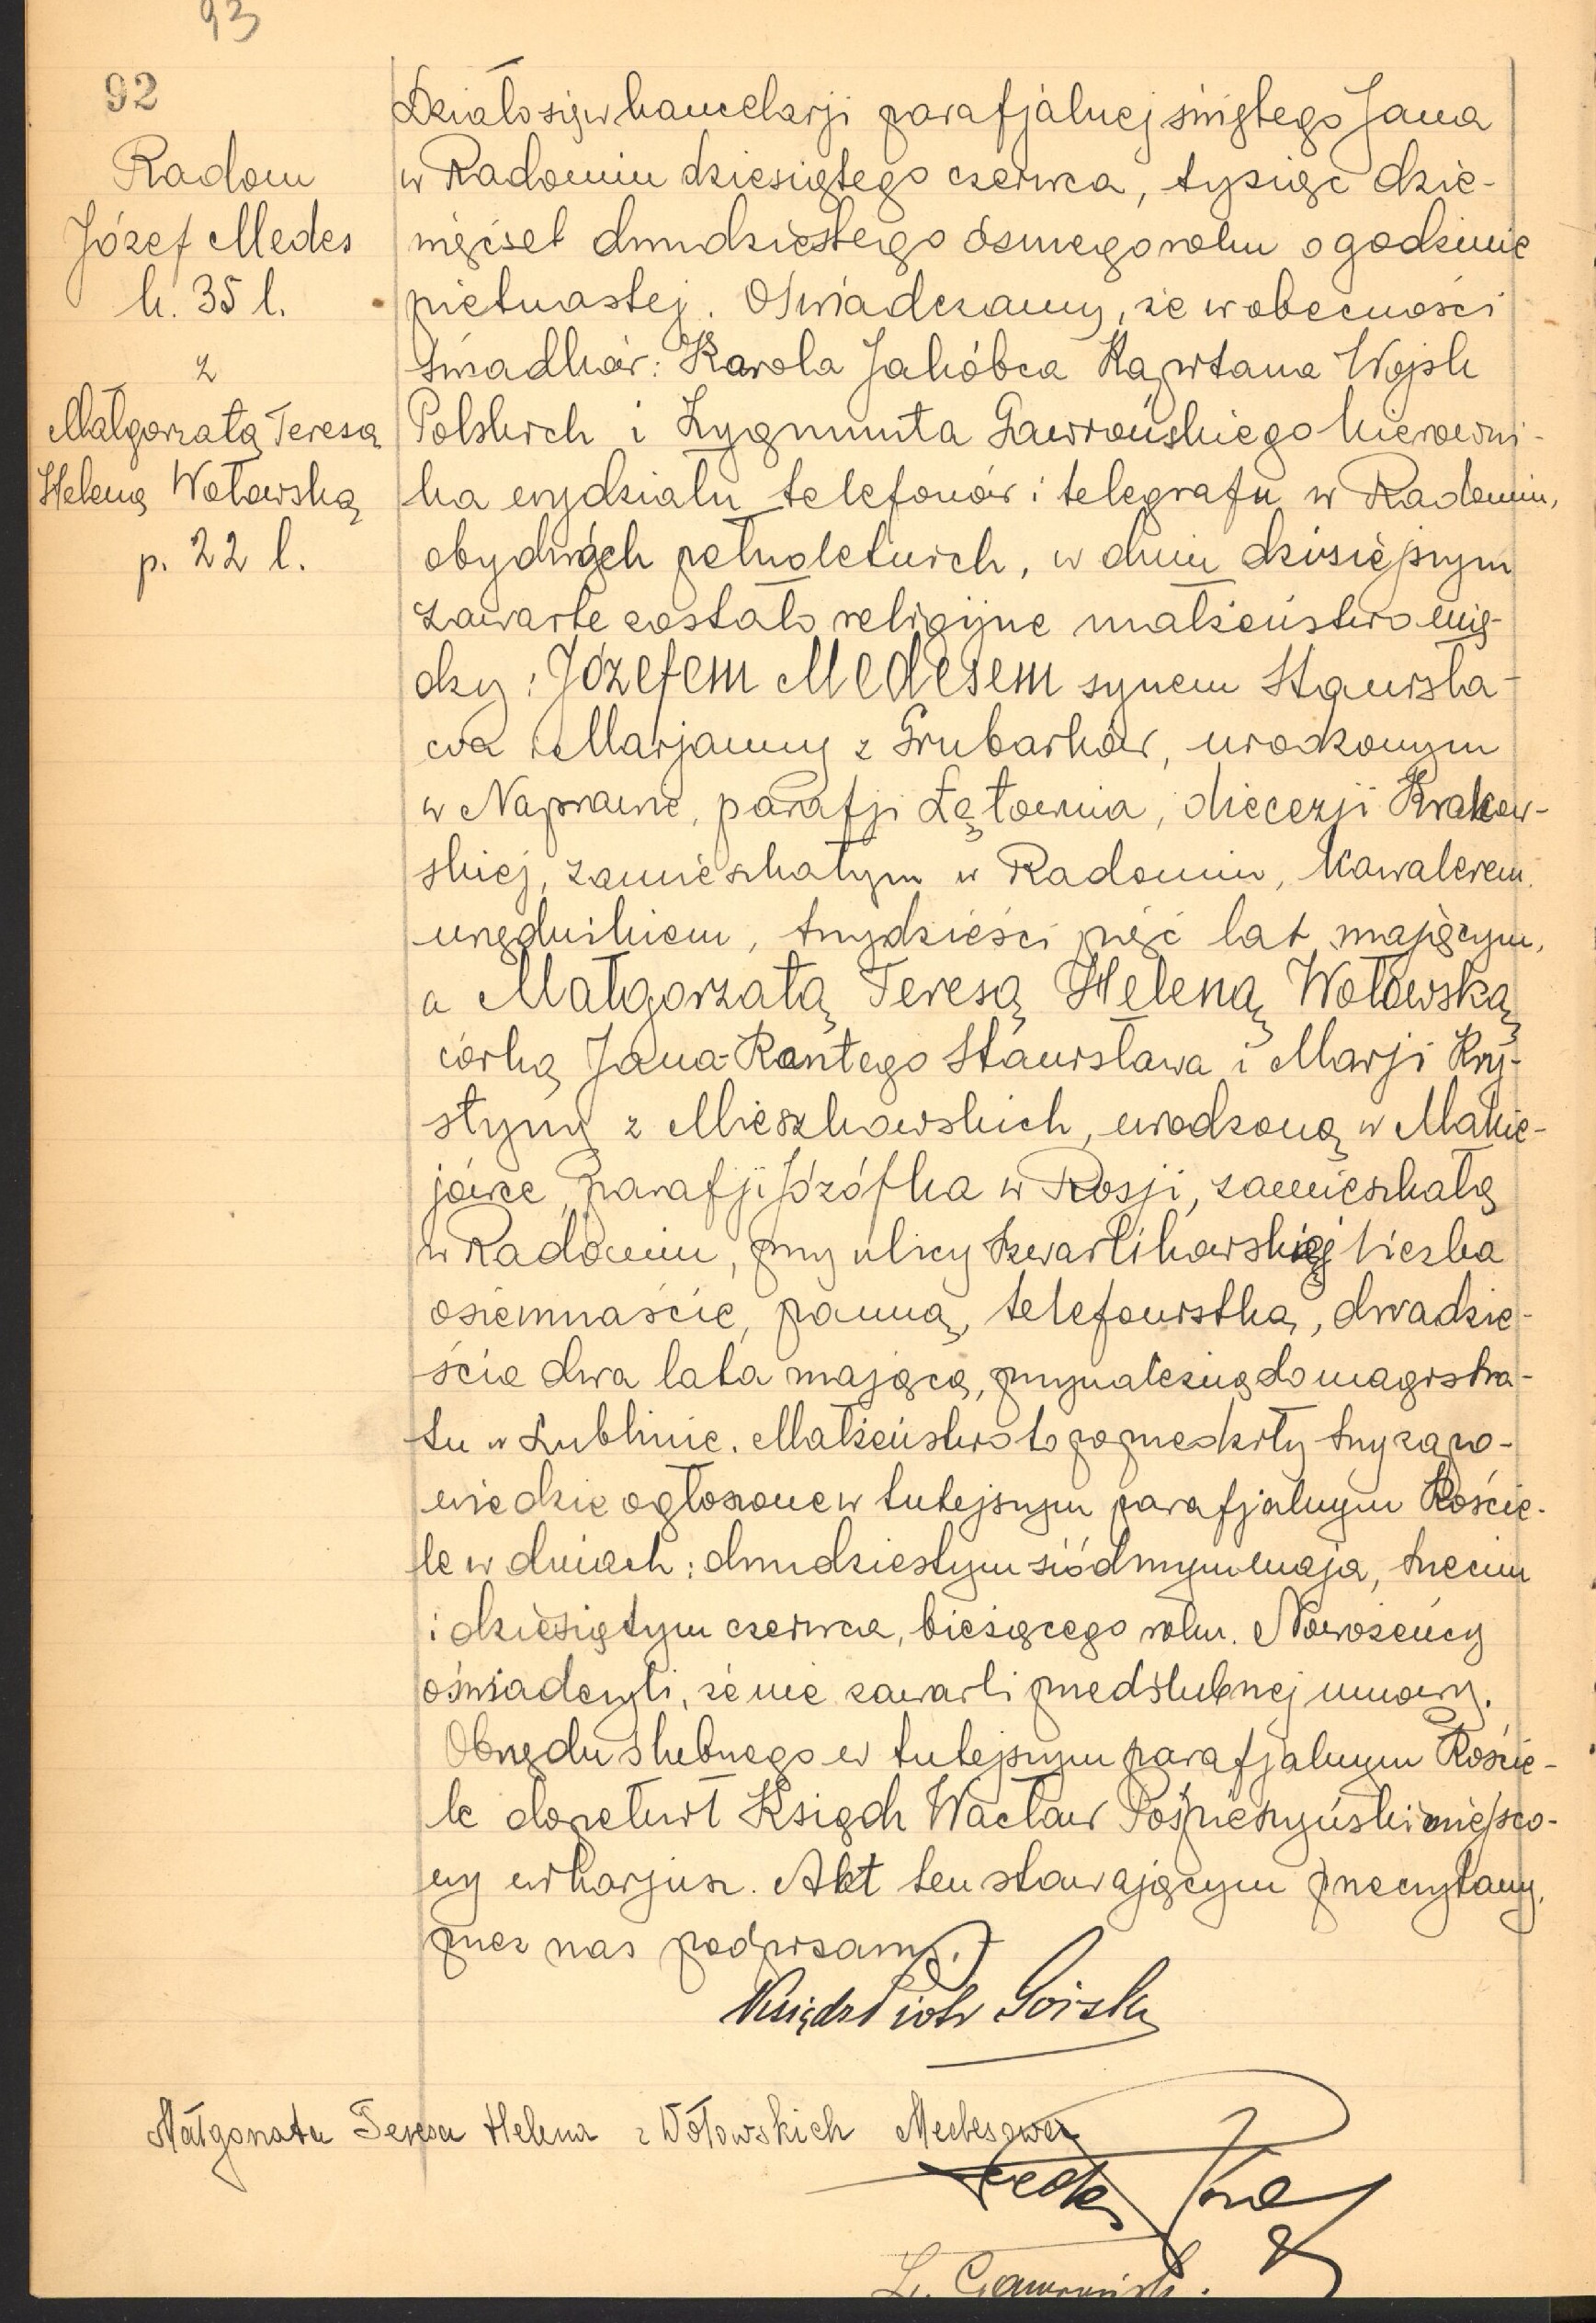 93
92
Radom
Józef Medes
k. 35 l.
z
Małgorzatą Teresą
Heleną Wołowską
p. 22 l.
Działo się w kancelarji parafjalnej świętego Jana
w Radomiu dziesiątego czerwca, tysiąc dzie-
więćset dwudziestego ósmego roku o godzinie
piętnastej. Oświadczamy, że w obecności
świadków: Karola Jakóbca Kapitana Wojsk
Polskich i Zygmunta Gawrońskiego kierowni-
ka wydziału telefonów i telegrafu w Radomiu,
obydwóch pełnoletnich, w dniu dzisiejszym
zawarte zostało religijne małżeństwo mię-
dzy: Józefem Medesem synem Stanisła-
wa i Marjanny z Grubarków, urodzonym
w Naprawie, parafji Łętownia, diecezji Krakow-
skiej, zamieszkałym w Radomiu, kawalerem
urzędnikiem, trzydzieści pięć lat mającym,
a Małgorzatą Teresą Heleną Wołowską
córką Jana-Kantego Stanisława i Marji Kry-
styny z Mieszkowskich, urodzoną w Makie-
jówce, parafji Józófka w Rosji, zamieszkałą
w Radomiu, przy ulicy Szwarlikowskiej liczba
osiemnaście, panną, telefonistką, dwadzie-
ścia dwa lata mającą, przynależną do magistra-
tu w Lublinie. Małżeństwo to poprzedziły trzy zapo-
wiedzie ogłoszone w tutejszym parafjalnym Koście-
le w dniach: dwudziestym siódmym maja, trzecim
i dziesiątym czerwca, bieżącego roku. Nowożeńcy
oświadczyli, że nie zawarli przedślubnej umowy.
Obrzędu ślubnego w tutejszym parafjalnym Koście-
le dopełnił Ksiądz Wacław Pośpieszyński miejsco-
wy wikarjusz. Akt ten stawającym przeczytany,
przez nas podpisany.
Ksiądz Piotr Górski
Małgorzata Teresa Helena z Wołowskich Medesowa
Z. Gawroński.